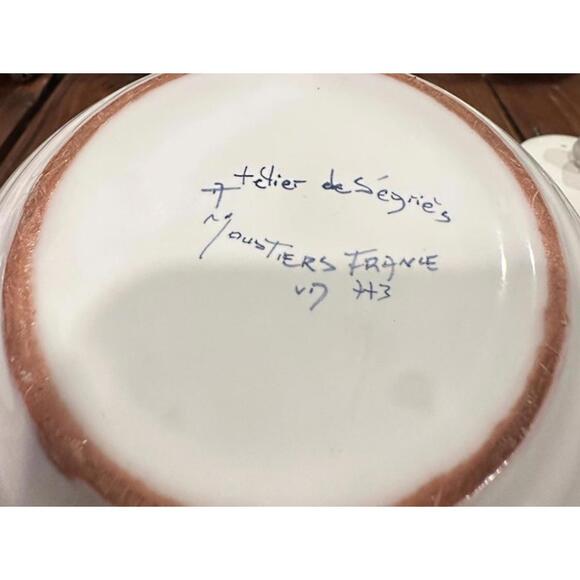 Atelier de Ségriès
Moustiers France